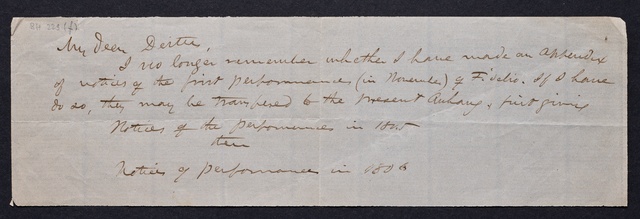 My dear Deiters,
I no longer remember whether I have made an Appendix
of notices of the first performances (in November) of Fidelio. If I have
do so, they may be transfered to the present Anhang, first giving
Notices of the performances in 1805
then
Notices of performance in 1806